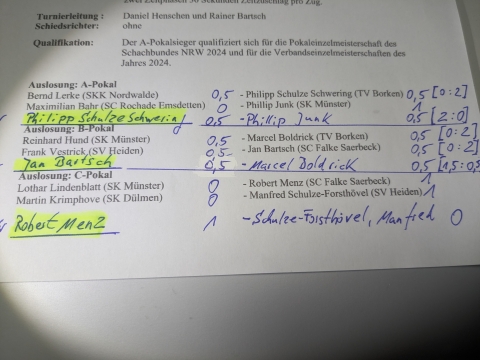 zwei Zeitphasen 30 Sekunden Zeitzuschlag pro Zug.
Turnierleitung : Daniel Henschen und Rainer Bartsch
Schiedsrichter: ohne
Qualifikation: Der A-Pokalsieger qualifiziert sich für die Pokaleinzelmeisterschaft des
Schachbundes NRW 2024 und für die Verbandseinzelmeisterschaften des
Jahres 2024.
Auslosung: A-Pokal
Bernd Lerke (SKK Nordwalde) 0,5 - Philipp Schulze Schwering (TV Borken) 0,5 [0:2]
Maximilian Bahr (SC Rochade Emsdetten) 0 - Phillip Junk (SK Münster) 1
Philipp Schulze Schwering 0,5 - Phillip Junk 0,5 [2:0]
Auslosung: B-Pokal
Reinhard Hund (SK Münster) 0,5 - Marcel Boldrick (TV Borken) 0,5 [0:2]
Frank Vestrick (SV Heiden) 0,5 - Jan Bartsch (SC Falke Saerbeck) 0,5 [0:2]
Jan Bartsch 0,5 - Marcel Boldrick 0,5 [1,5:0,5
Auslosung: C-Pokal
Lothar Lindenblatt (SK Münster) 0 - Robert Menz (SC Falke Saerbeck) 1
Martin Krimphove (SK Dülmen) 0 - Manfred Schulze-Forsthövel (SV Heiden) 1
Robert Menz 1 - Schulze-Forsthövel, Manfred 0